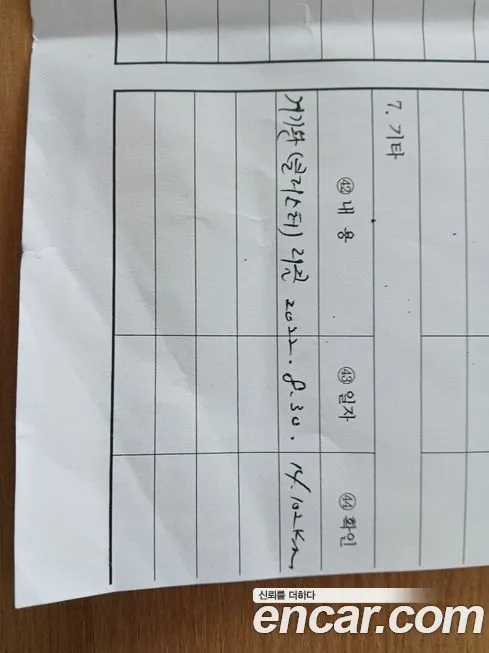 7. 기타
㊷ 내 용 ㊸ 일자 ㊹ 확인
계기판 (클러스터) 리콜 2022. 8. 30. 14.102Km
신뢰를 더하다
encar.com